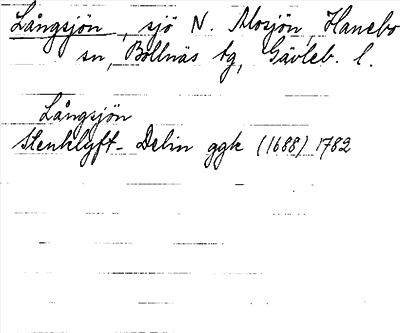 Långsjön, sjö N. Mosjön, Hanebo
sn, Bollnäs tg, Gävleb. l.
Långsjön
Stenklyft- Delin ggk (1688) 1782